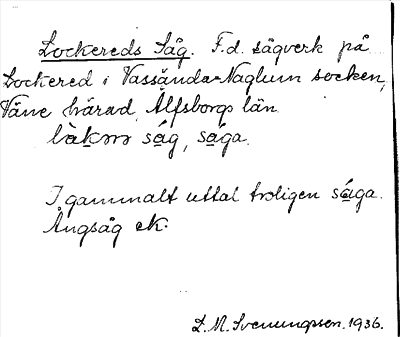 Lockereds Såg. F.d. sågverk på
Lockered i Vassända-Naglum socken,
Väne härad, Älfsborgs län
såg, såga.
I gammalt uttal troligen såga.
Ångsåg
L. M. Svenungsson. 1936.